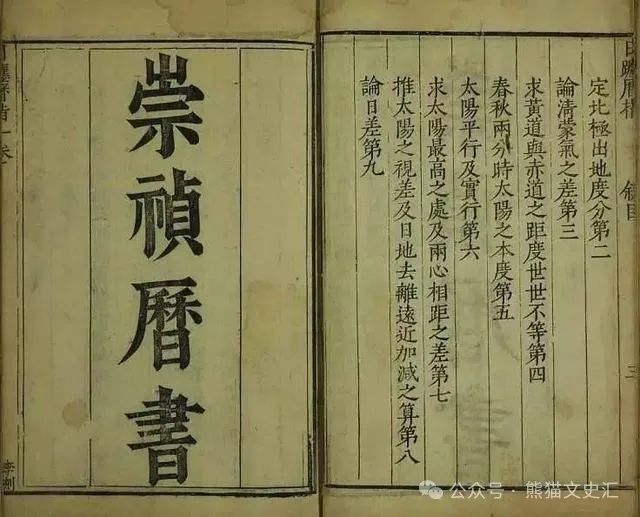 定北極出地度分第二
論清蒙氣之差第三
求黃道與赤道之距度世世不等第四
春秋兩分時太陽之本度第五
太陽平行及實行第六
求太陽最高之處及兩心相距之差第七
推太陽之視差及日地去離遠近加減之算第八
論日差第九
三
崇禎曆書
公众号 · 熊猫文史汇